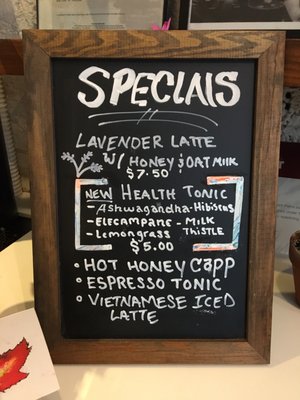 SPECIAlS
LAVENDER LATTE
W/ HONEY & OAT MILK
$7.50
NEW HEALTH TONIC
- Ashwagandha - Hibiscus
- Elecampane - MILK
- Lemongrass THISTLE
$5.00
• HOT HONEY CAPP
• ESPRESSO TONIC
• VIETNAMESE ICED
LATTE